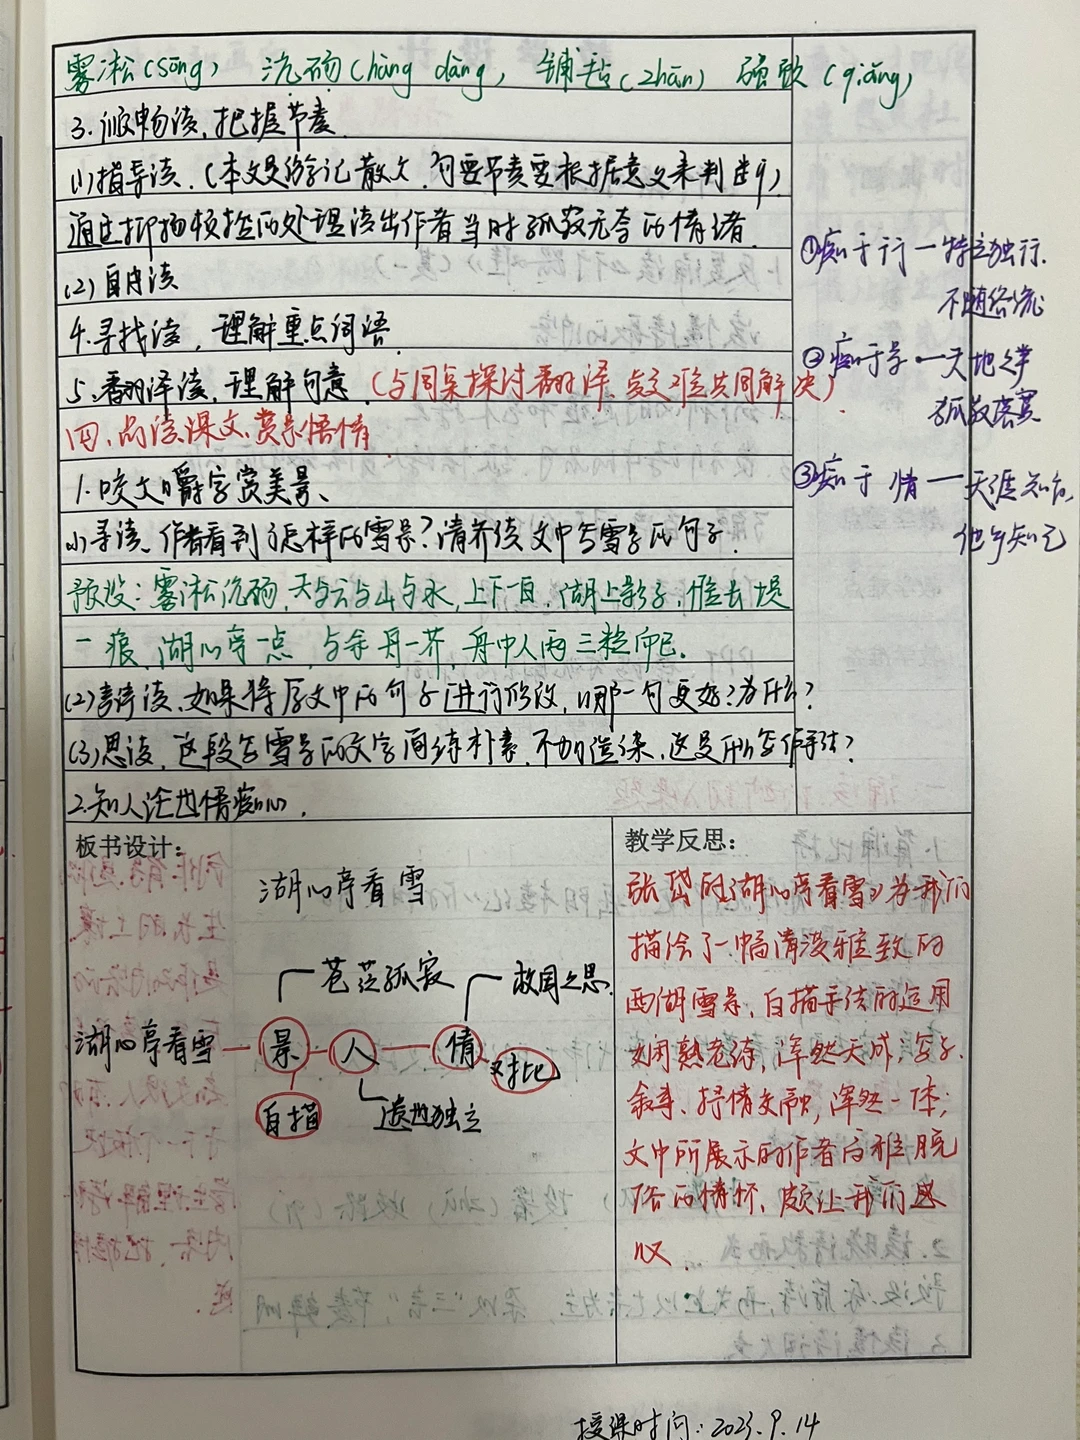 雾凇(sōng) 沆砀(hàng dàng) 铺毡(zhān) 强饮(qiǎng)
3.顺畅读,把握节奏
(1)指导读.(本文是游记散文,句票节奏要根据意义来判断)
通过抑扬顿挫的处理读出作者当时孤寂无奈的情绪.
(2)自由读
4.寻找读,理解重点词语
5.翻译读,理解句意.(与同桌探讨翻译,疑难共同解决)
四、品读课文,赏景悟情
1.咬文嚼字赏美景、
(1)寻读、作者看到了怎样的雪景?请齐读文中写雪景的句子.
预设:雾凇沆砀,天与云与山与水,上下一白,湖上影子,惟长堤
一痕、湖心亭一点,与余舟一芥,舟中人两三粒而已.
(2)读、如果将原文中的句子进行修改,哪一句更好?为什么?
(3)思读,这段写雪景的文字简练朴素,不加渲染,这是什么写作手法?
2.知人论世情痴心.
①痴于行—特立独行.
不随俗流
②痴于景—天地之
孤寂
③痴于情—天涯知
他乡知己
板书设计:
湖心亭看雪
苍茫孤寂
故国之思
湖心亭看雪—景—人—情 对比
白描
遗世独立
教学反思:
张岱的《湖心亭看雪》为我们
描绘了一幅清淡雅致的
西湖雪景,白描手法的运用
娴熟老练,浑然天成,写景、
叙事、抒情交融,浑然一体;
文中所展示的作者高雅脱
俗的情怀、颇让我们感
叹.
授课时间:2023.9.14